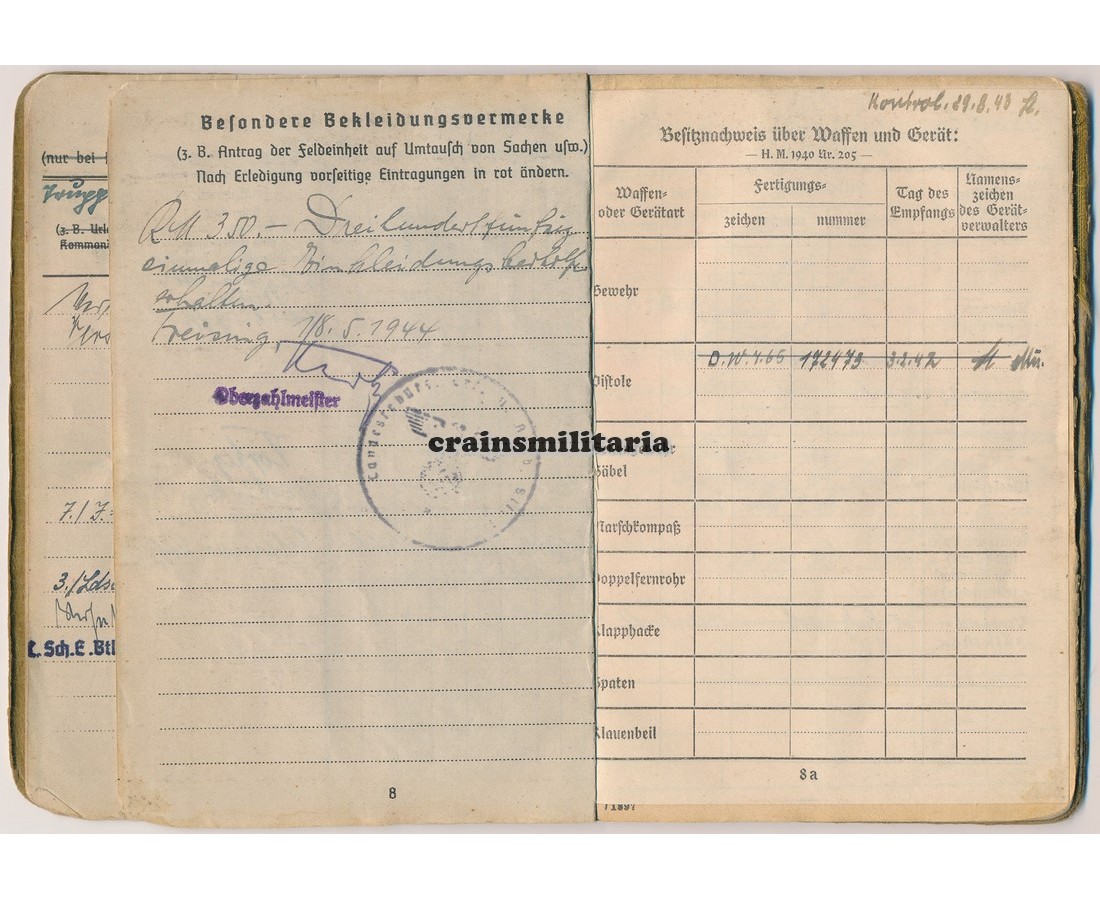 (nur bei
Trupp
(z. B. Url
Kommand
7./J.
3./Lds
L. Sch. E. Btl
Besondere Bekleidungsvermerke
(z. B. Antrag der Feldeinheit auf Umtausch von Sachen usw.)
Nach Erledigung vorseitige Eintragungen in rot ändern.
RM 350.- Dreihundertfünfzig
einmalige Einkleidungsbeihilfe
erhalten.
Freising, 18.5.1944
Oberzahlmeister
crainsmilitaria
8
Kontrol. 29.8.43
Besitznachweis über Waffen und Gerät:
— H. M. 1940 Nr. 205 —
Waffen- oder Gerätart
Fertigungs-
zeichen
nummer
Tag des Empfangs
Namens-zeichen des Gerät-verwalters
Gewehr
Pistole
D.W. 7.65 172473 3.2.42
Säbel
Marschkompaß
Doppelfernrohr
Klapphacke
Spaten
Klauenbeil
8a